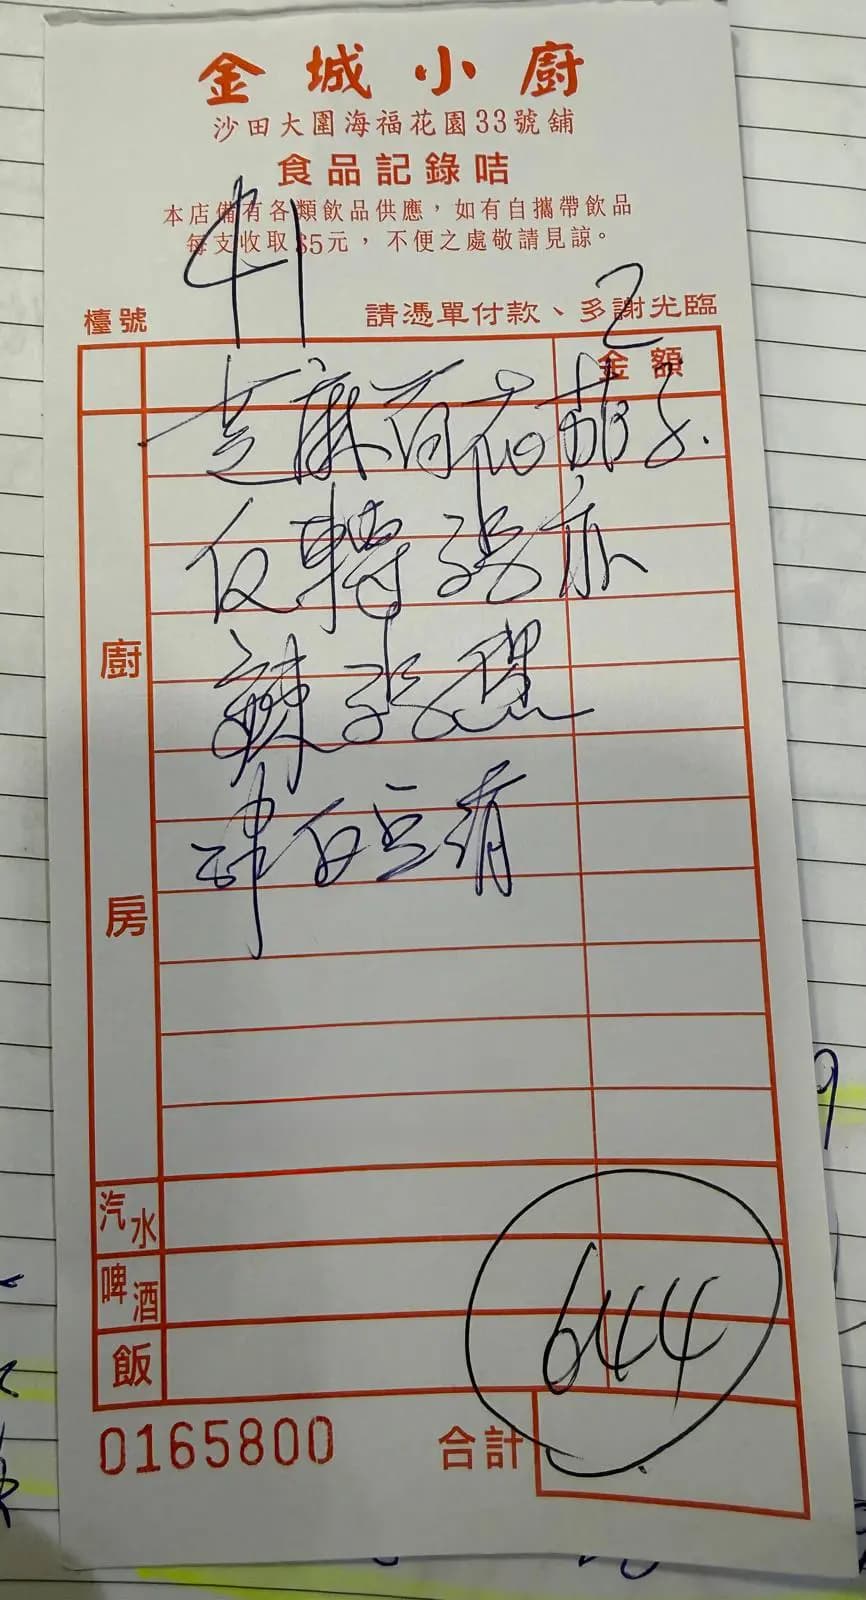 金城小廚
沙田大圍海福花園33號舖
食品記錄咭
本店備有各類飲品供應，如有自攜帶飲品
每支收取$5元，不便之處敬請見諒。
檯號 41 請憑單付款、多謝光臨 2
金額
芝麻荷花茄子
反轉
辣
白豆
廚房
汽水
啤酒
飯
644
0165800 合計